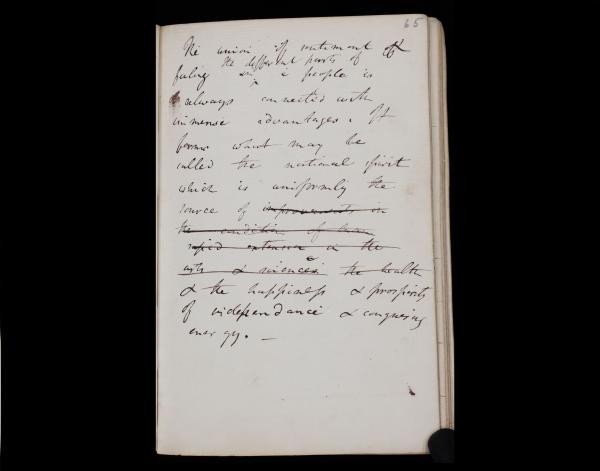 65
The union of sentiment &
the different parts of
feeling in a people is
always connected with
immense advantages. It
forms what may be
called the national spirit
which is uniformly the
source of improvements in
the condition of
rapid extension in the
arts & sciences the health
& the happiness & prosperity
of independance & conquering
energy. —